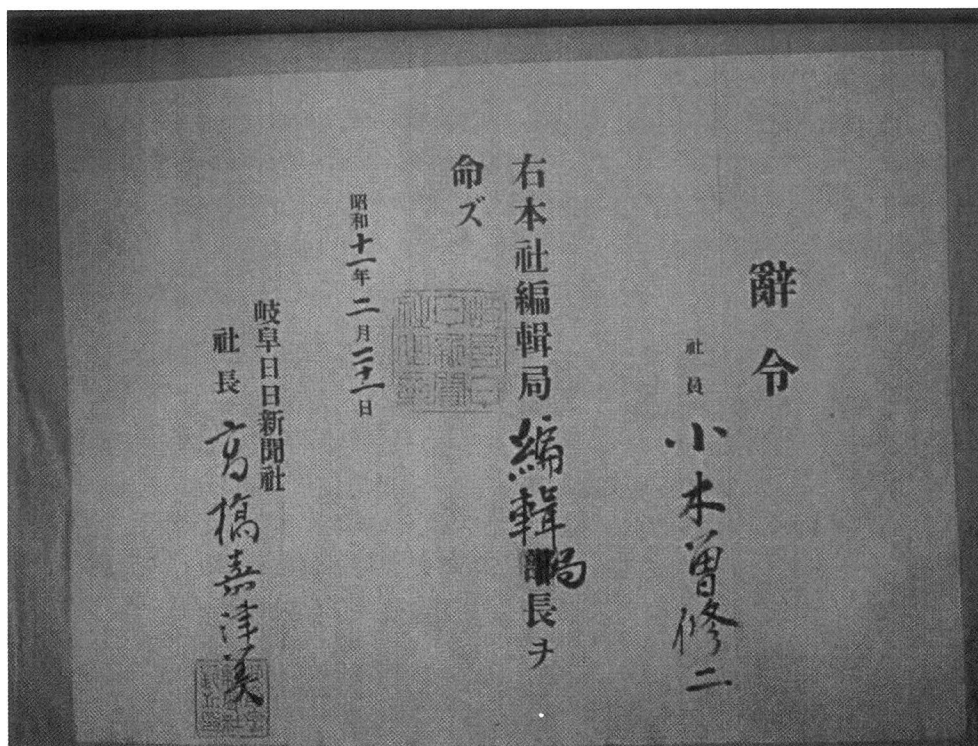 辭令
社員 小木曽修二
右本社編輯局編輯局長ヲ
命ズ
昭和十一年二月二十一日
岐阜日日新聞社
社長 高橋嘉津美